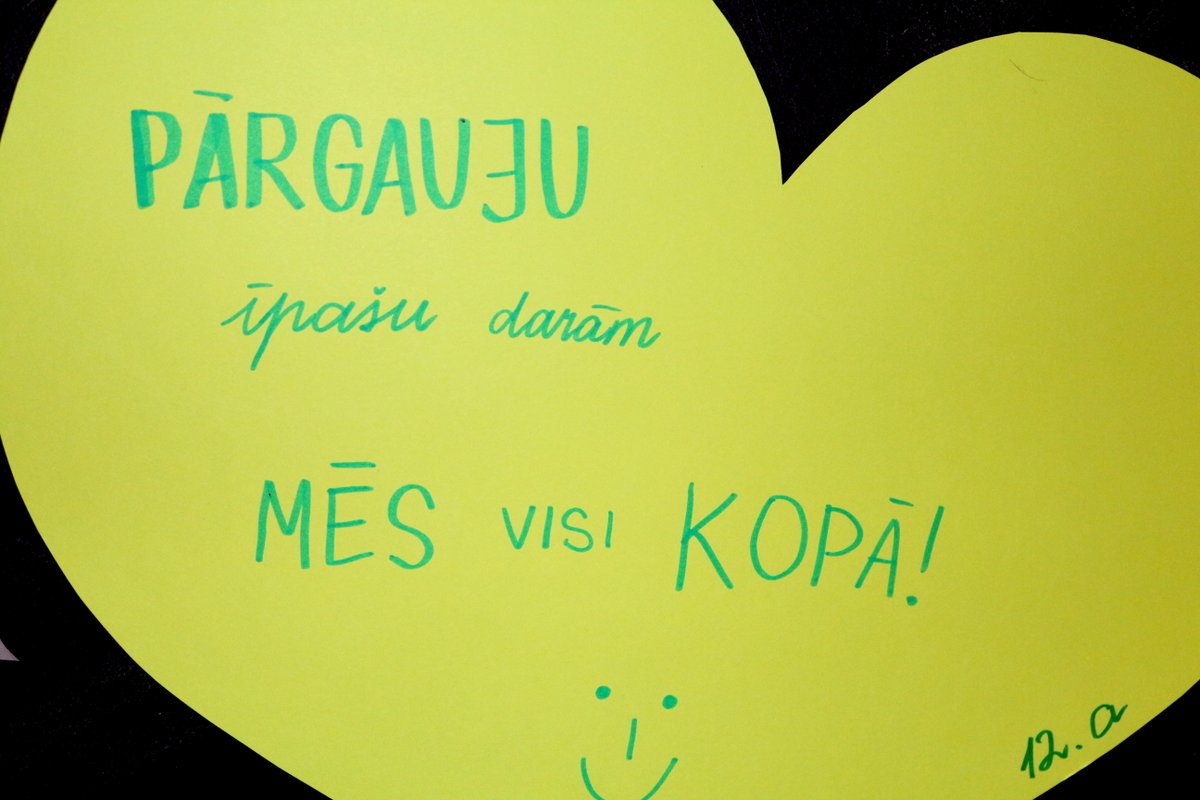 PĀRGAUJU
īpašu darām
MĒS VISI KOPĀ!
12. a